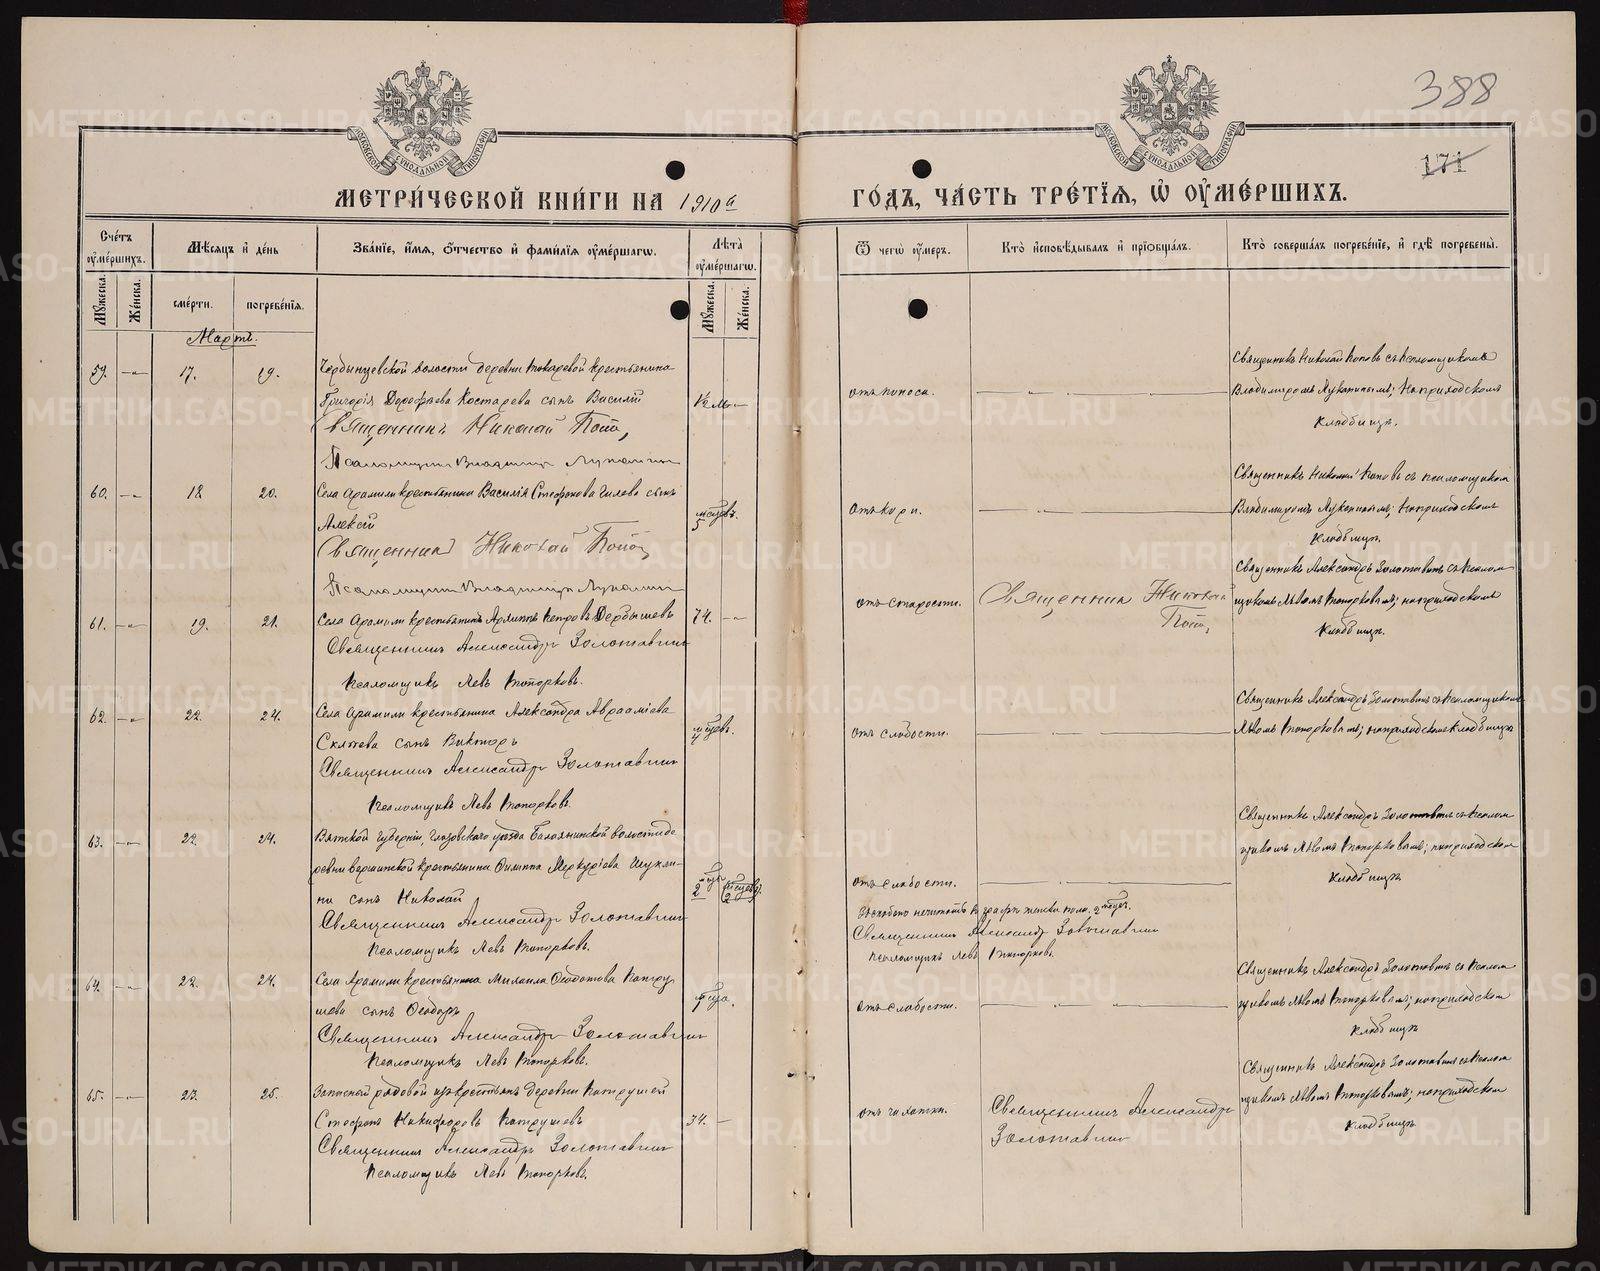 388
171
МЕТРИ́ЧЕСКОЙ КНИ́ГИ НА 1910й ГО́ДЪ, ЧА́СТЬ ТРЕ́ТЇѦ, Ѡ҆ ОУ҆МЕ́РШИХЪ.
Сче́тъ оу҆ме́ршихъ.
Мѣ́сѧцъ и҆ де́нь
Зва́нїе, и҆́мѧ, ѻ҆́тчество и҆ фами́лїѧ оу҆ме́ршагѡ.
Лѣ́та оу҆ме́ршагѡ.
Ѿ чегѡ̀ оу҆́меръ.
Кто̀ и҆сповѣ́дывалъ и҆ прїѡбща́лъ.
Кто̀ соверша́лъ погребе́нїе, и҆ гдѣ̀ погребены̀.
Мꙋ́жеска.
Же́нска.
сме́рти.
погребе́нїѧ.
Мꙋ́жеска.
Же́нска.
Мартъ.
59. 17. 19.
деревни Токаревой крестьянина
Григорія Дорофѣева Костарева сынъ Василій
½ м.
Священникъ Николай Попов,
Псаломщикъ Владимиръ Лукины
отъ поноса.
Священникъ Николай Поповъ съ псаломщикомъ
Владимиромъ; на приходскомъ
кладбищѣ.
60. 18. 20.
Села Арамили крестьянина Василія Стефанова сынъ
Алексій
5 мѣсцевъ.
Священник Николай Попов,
Псаломщикъ Владимиръ
отъ кори.
Священникъ Николай Поповъ съ псаломщикомъ
Владимиромъ; на приходскомъ
кладбищѣ.
61. 19. 21.
Села Арамили крестьянинъ Архиппъ Петровъ Дербышевъ
74.
Священникъ Александръ Золотавинъ
Псаломщикъ Левъ Топорковъ.
отъ старости.
Священник Николай
Попов,
Священникъ Александръ Золотавинъ съ псалом
щикомъ Львомъ Топорковымъ; на приходскомъ
кладбищѣ.
62. 22. 24.
Села Арамили крестьянина Александра Авраамiева
сынъ Викторъ
4 мѣсцевъ.
Священникъ Александръ Золотавинъ
Псаломщикъ Левъ Топорковъ.
отъ слабости.
Священникъ Александръ Золотавинъ съ псаломщикомъ
Львомъ Топорковымъ; на приходскомъ кладбищѣ
63. 22. 24.
Вятской губерніи, Глазовскаго уѣзда волости де
ревни крестьянина Филиппа Меркуріева Шукли-
на сынъ Николай
2
Священникъ Александръ Золотавинъ
Псаломщикъ Левъ Топорковъ.
отъ слабости.
нечитать въ графѣ женск. пола. 2 мѣсцъ.
Священникъ Александръ Золотавинъ
Псаломщикъ Левъ Топорковъ.
Священникъ Александръ Золотавинъ съ псалом
щикомъ Львомъ Топорковымъ; на приходскомъ
кладбищѣ
64. 22. 24.
Села Арамили крестьянина Михаила Патру
шева сынъ Ѳеодоръ
Священникъ Александръ Золотавинъ
Псаломщикъ Левъ Топорковъ.
отъ слабости.
Священникъ Александръ Золотавинъ съ псалом
щикомъ Львомъ Топорковымъ; на приходскомъ
кладбищѣ
65. 23. 25.
Запасный рядовой изъ крестьянъ деревни Патрушей
Стефанъ Никифоровъ Патрушевъ
34.
Священникъ Александръ Золотавинъ
Псаломщикъ Левъ Топорковъ.
отъ чахотки.
Священникъ Александръ
Золотавинъ
Священникъ Александръ Золотавинъ съ псалом
щикомъ Львомъ Топорковымъ; на приходскомъ
кладбищѣ
METRIKI.GASO-URAL.RU